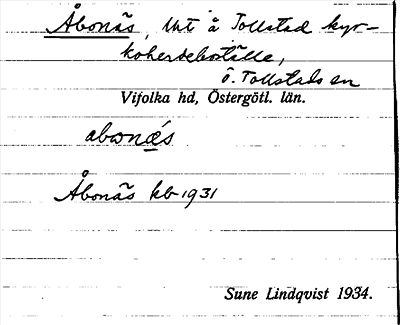 Åbonäs, Utt å Tollstad kyr-
koherdeboställe,
Ö. Tollstads sn
Vifolka hd, Östergötl. län.
abonæ̀s
Åbonäs kb 1931
Sune Lindqvist 1934.